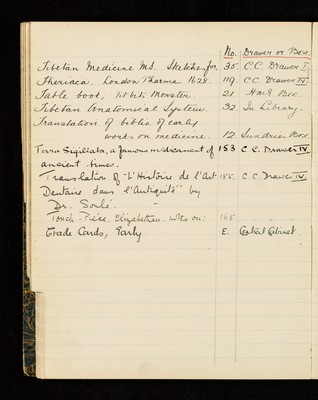 No. Drawer or Box.
Tibetan Medicine MS. Sketches for. 35. C.C. Drawer I.
Theriaca. London Pharma. 1628. 119. C C. Drawer IV.
Table book, Bibiti Monster 21. Box.
Tibetan Anatomical System. 32. In Library.
Translation of biblio of early
works on medicine. 12. Sundries Box.
Terra Sigillata, a famous medicament of 153 C C. Drawer IV
ancient times.
Translation of "L'Histoire de l'Art 155. C.C. Drawer IV.
Dentaire dans l'Antiquité" by
Dr. Soulé. -
Touch-Piece, Elizabethan. notes on: 105 " " "
Trade Cards, Early E. Central Cabinet.